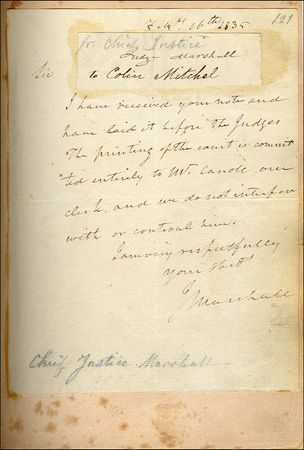 16th 1835
121
fr. Chief Justice
Judge Marshall
to Colin Mitchel
Sir
I have received your note and
have laid it before the Judges
The printing of the court is commit
ted entirely to Mr. Carroll our
clerk, and we do not interfere
with or control him.
I am very respectfully
your Obedt
J Marshall
Chief Justice Marshall